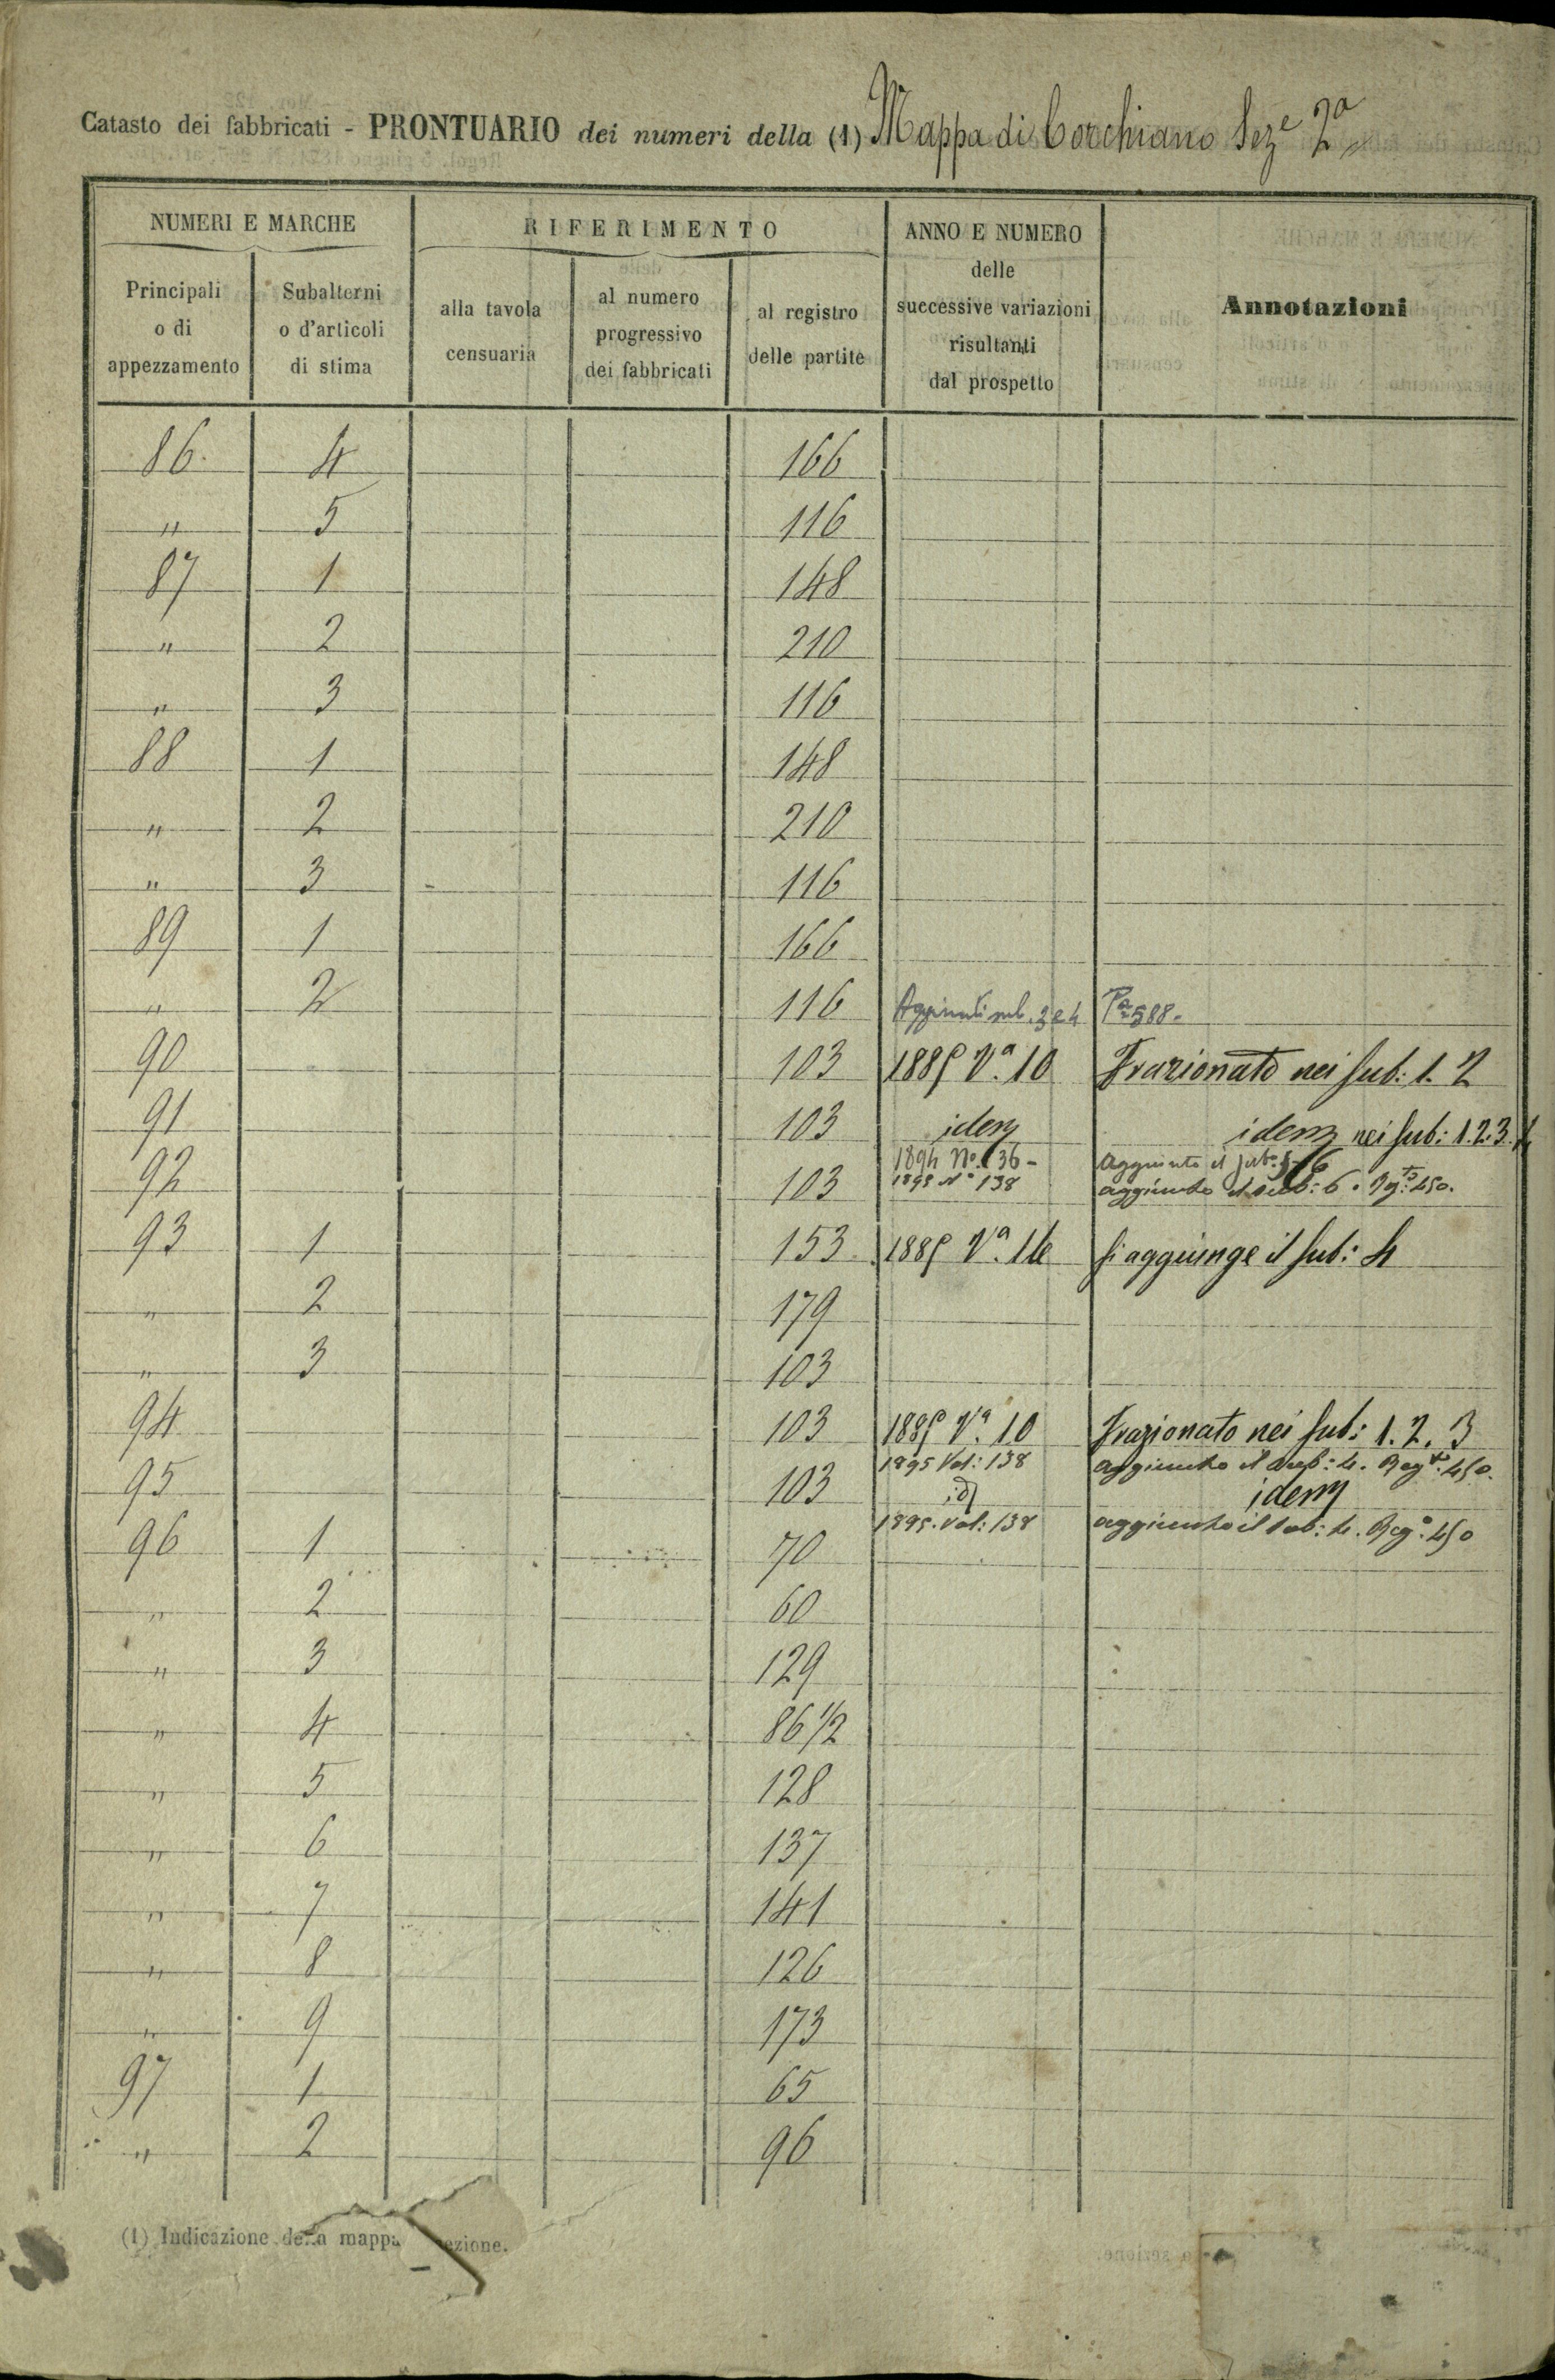 Catasto dei fabbricati - PRONTUARIO dei numeri della (1) Mappa di Corchiano Seze 2a
NUMERI E MARCHE
Principali o di appezzamento
Subalterni o d'articoli di stima
RIFERIMENTO
alla tavola censuaria
al numero progressivo dei fabbricati
al registro delle partite
ANNO E NUMERO delle successive variazioni risultanti dal prospetto
Annotazioni
86 4 166
" 5 116
87 1 148
" 2 210
" 3 116
88 1 148
" 2 210
" 3 116
89 1 166
" 2 116 Aggiunti sub. 3 e 4 Pa 588.
90 103 1885 Va. 10 Frazionato nei sub: 1. 2
91 103 idem idem nei sub: 1.2.3.4
1894 No. 136 - aggiunto il sub:
92 103 1895 No 138 aggiunto il sub: 6. 450.
93 1 153 1885 Va. 16 si aggiunge il sub: 4
" 2 179
" 3 103
94 103 1885 Va. 10 Frazionato nei sub: 1. 2. 3
1895 Vol: 138 aggiunto il sub: 4. Regto: 450.
95 103 id idem
1895. Vol: 138 aggiunto il sub: 4. Rego: 450
96 1 70
" 2 60
" 3 129
" 4 86 1/2
" 5 128
" 6 137
" 7 141
" 8 126
" 9 173
97 1 65
" 2 96
(1) Indicazione della mappa ezione.